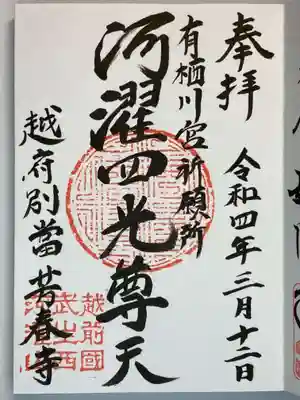 奉拝
令和四年三月十二日
有栖川宮祈願所
河濯四光尊天
越府別當芳春寺
越前國